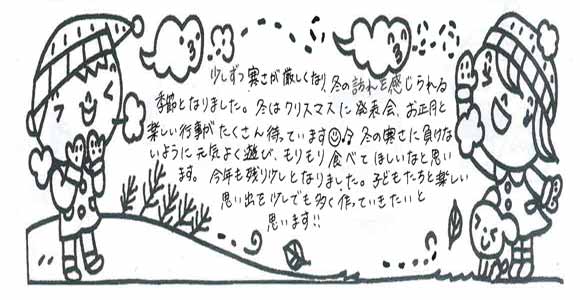 少しずつ寒さが厳しくなり冬の訪れを感じられる
季節となりました。冬はクリスマスに発表会、お正月と
楽しい行事がたくさん待っています😊♪ 冬の寒さに負けな
いように元気よく遊び、もりもり食べてほしいなと思い
ます。今年も残り少しとなりました。子どもたちと楽しい
思い出を少しでも多く作っていきたいと
思います!!